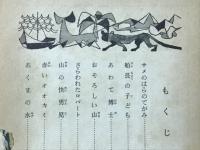 もくじ
サメのはらのてがみ
船長の子ども
あわて博士
おそろしい山
さらわれたロバート
山の快男児
赤いオオカミ
おくすの水